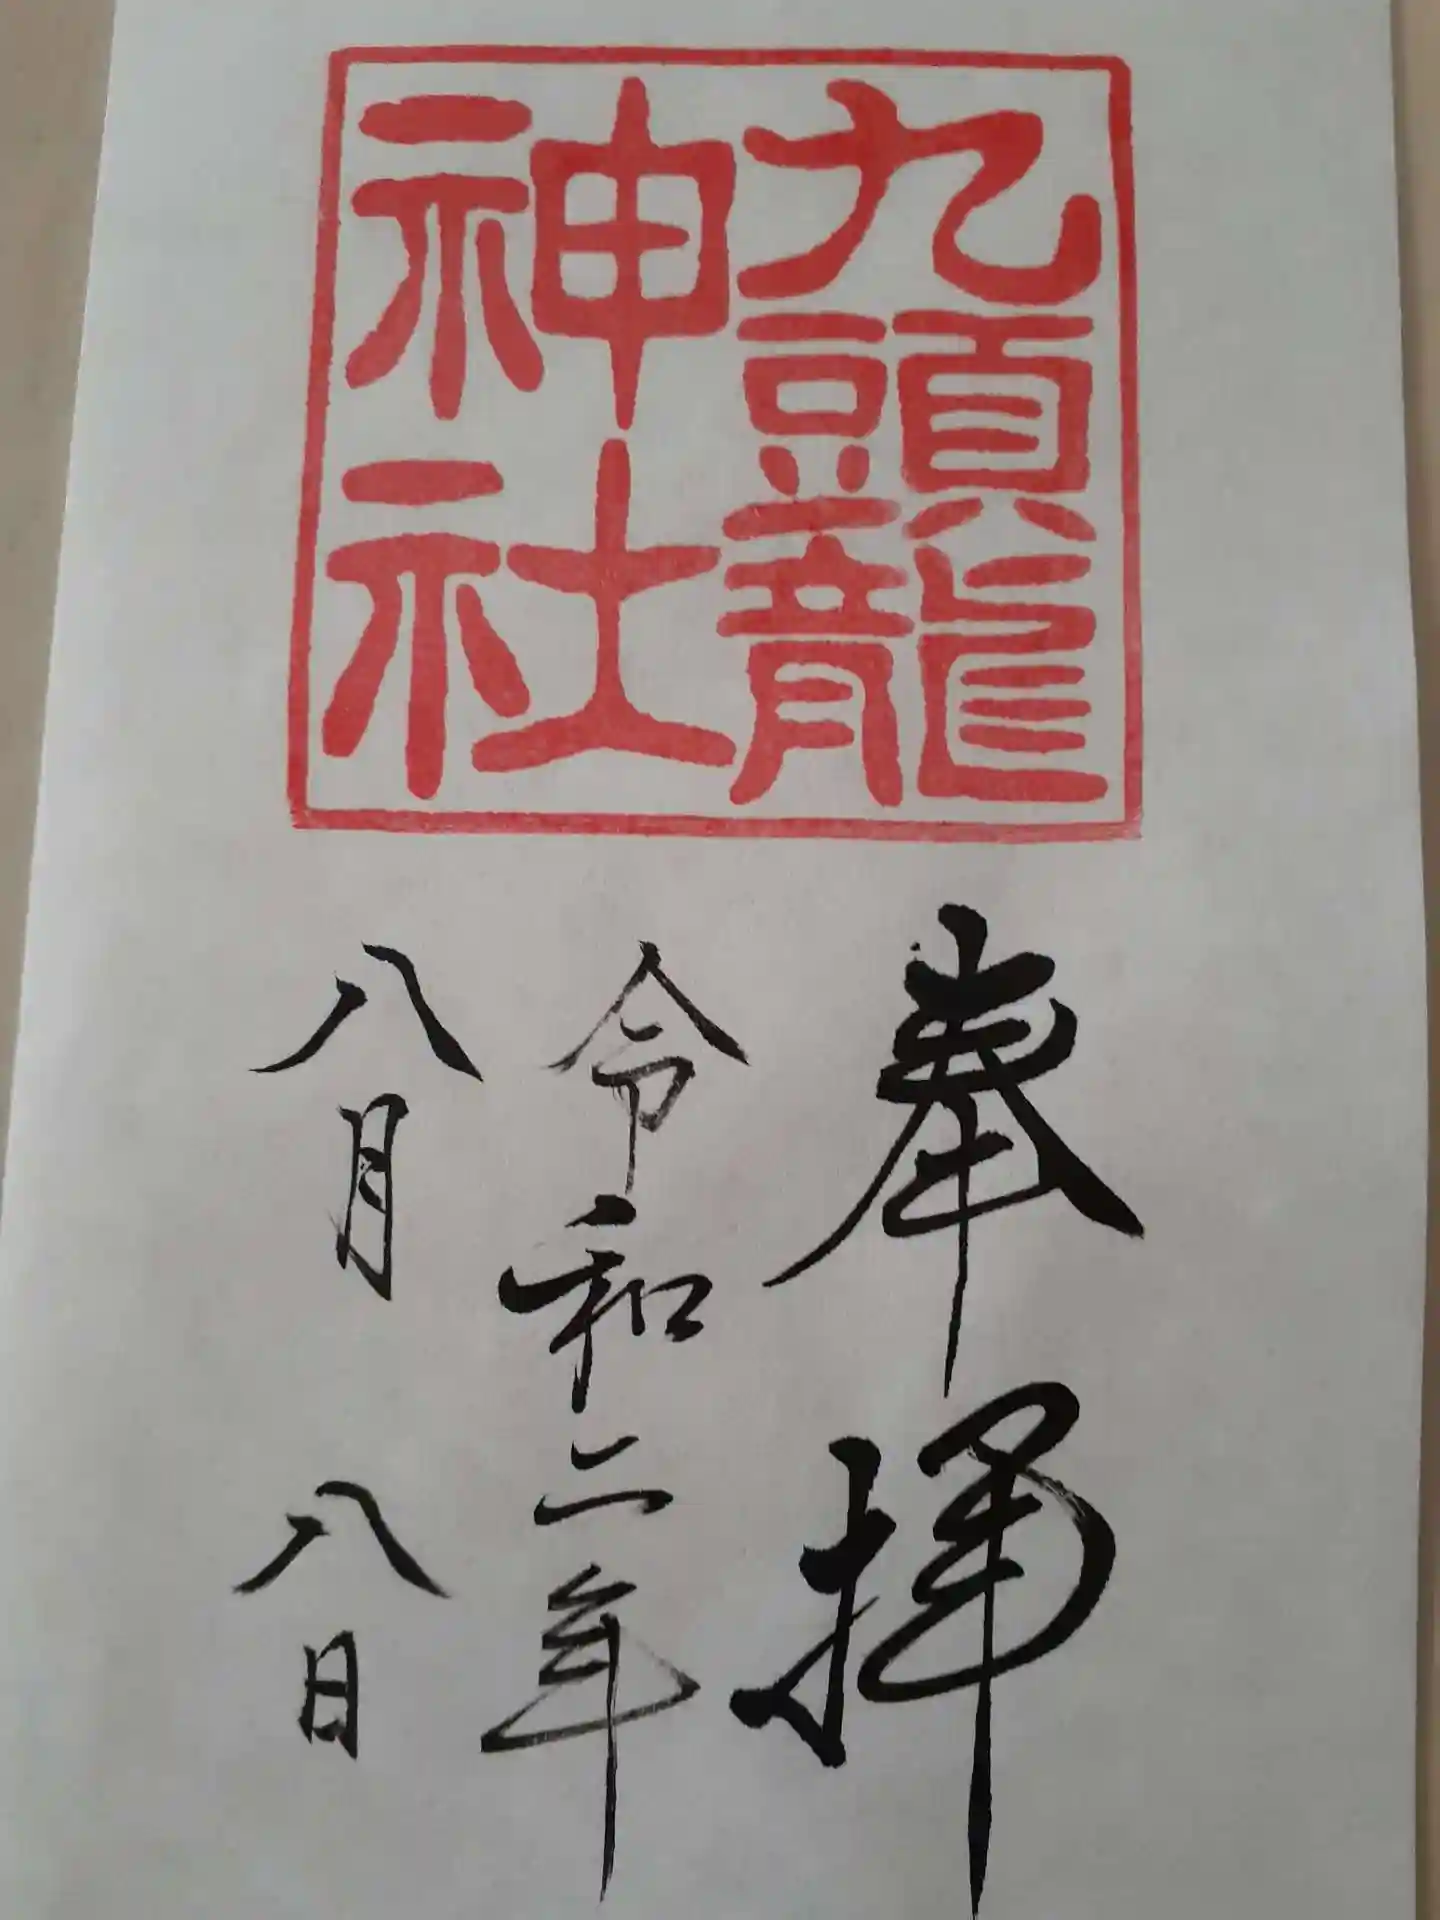 九頭龍
神社
奉拝
令和二年
八月八日